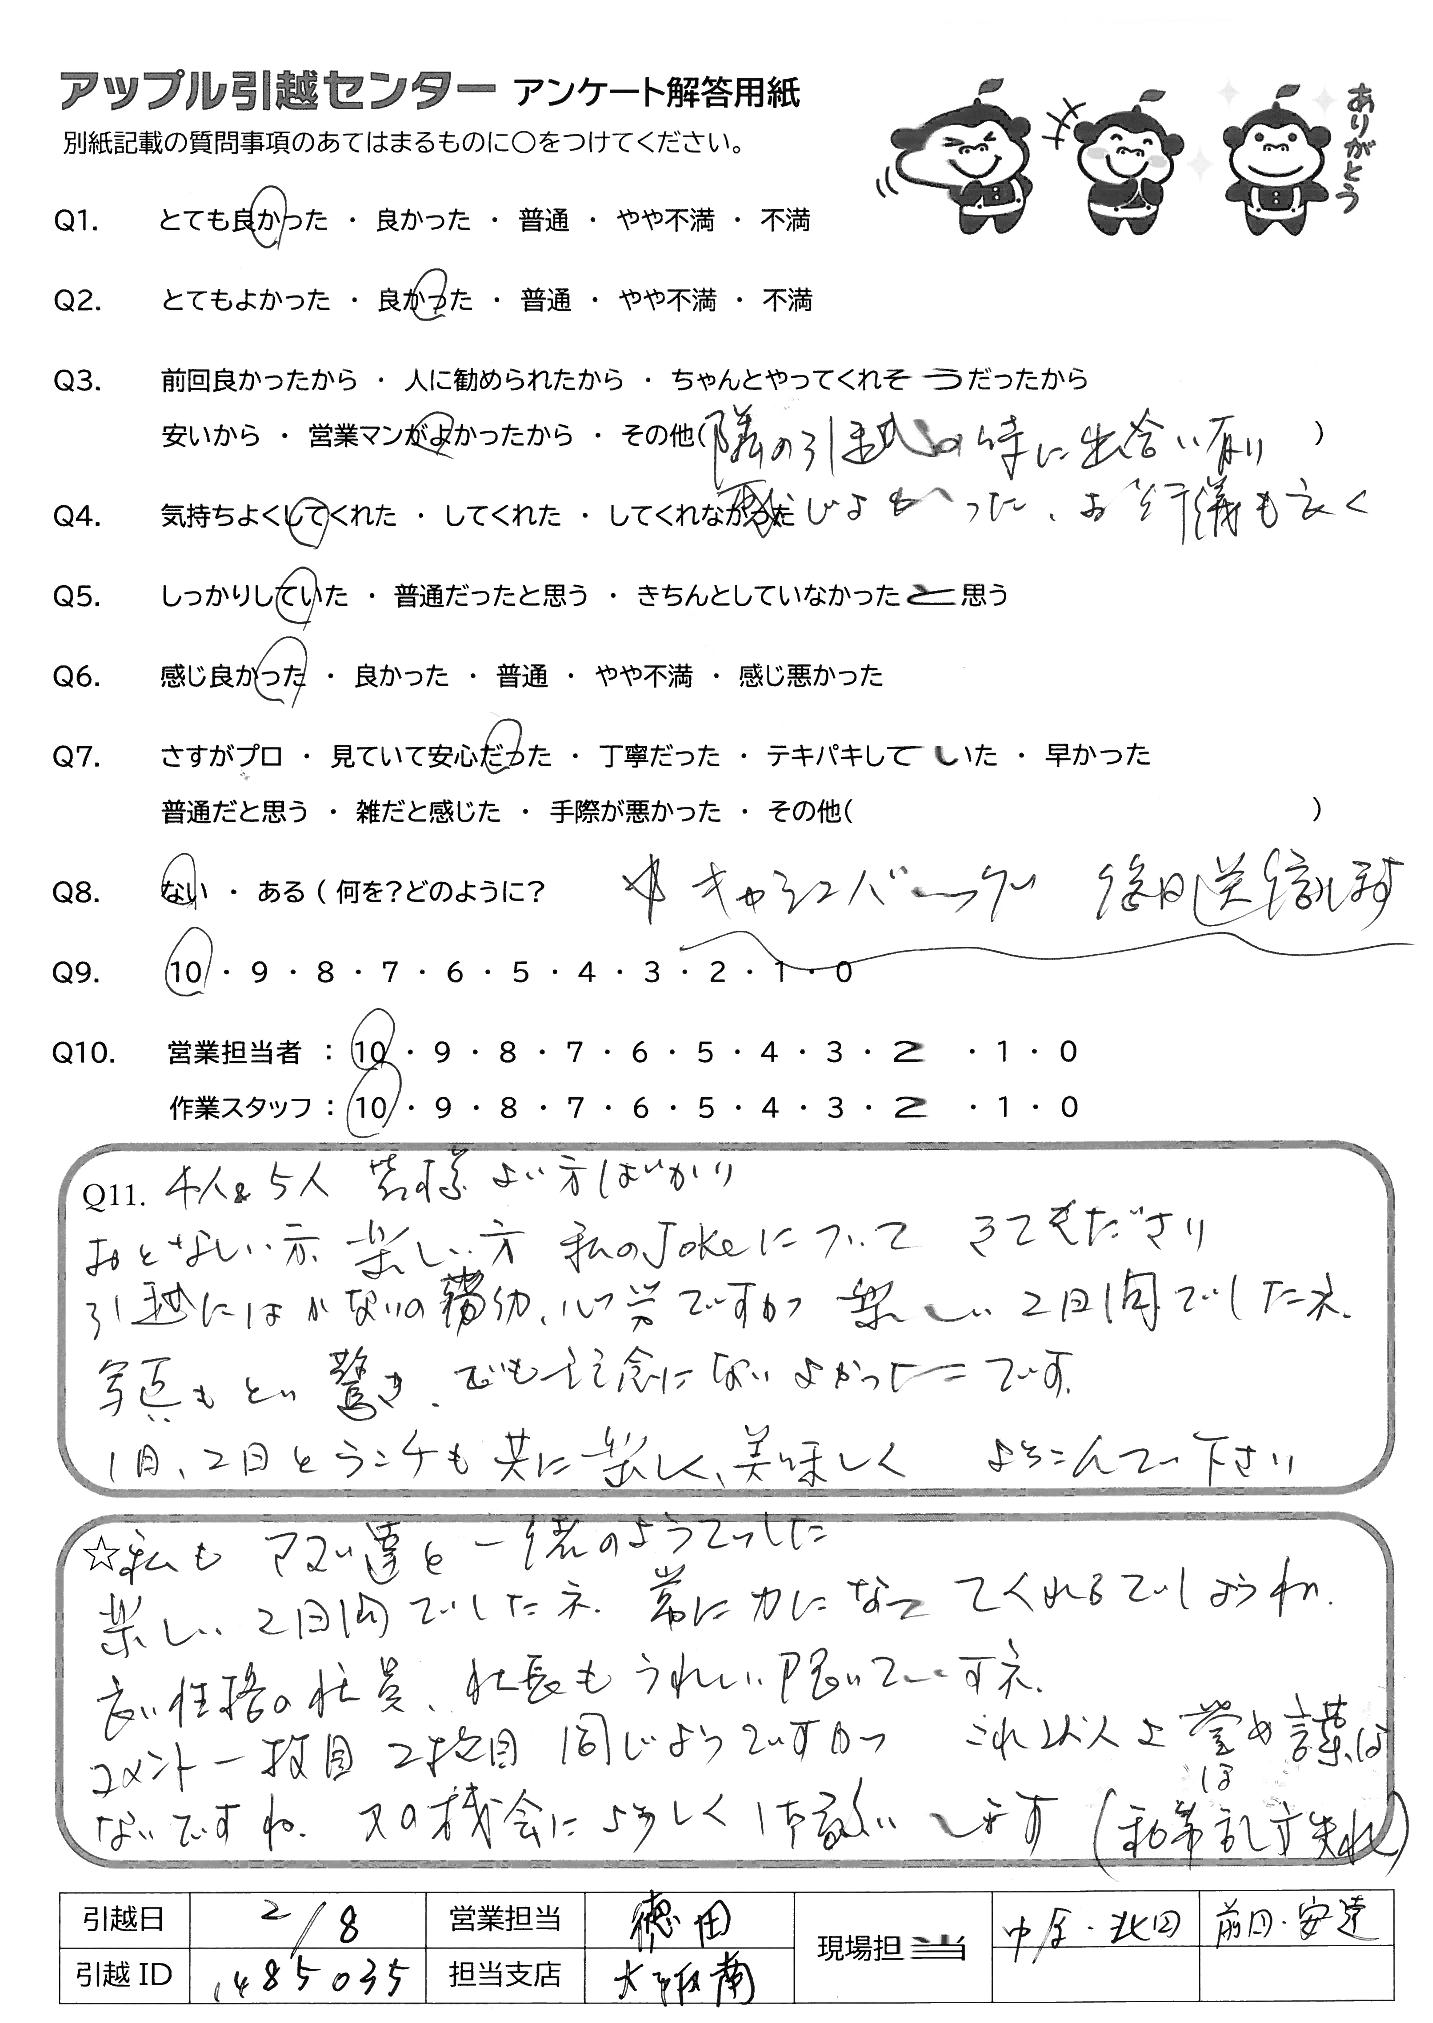 アップル引越センター アンケート解答用紙
別紙記載の質問事項のあてはまるものに〇をつけてください。
ありがとう
Q1. とても良かった ・ 良かった ・ 普通 ・ やや不満 ・ 不満
Q2. とてもよかった ・ 良かった ・ 普通 ・ やや不満 ・ 不満
Q3. 前回良かったから ・ 人に勧められたから ・ ちゃんとやってくれそうだったから
安いから ・ 営業マンがよかったから ・ その他( 隣の引越の時に出合い有り )
感じよかった、お行儀も良く
Q4. 気持ちよくしてくれた ・ してくれた ・ してくれなかった
Q5. しっかりしていた ・ 普通だったと思う ・ きちんとしていなかったと思う
Q6. 感じ良かった ・ 良かった ・ 普通 ・ やや不満 ・ 感じ悪かった
Q7. さすがプロ ・ 見ていて安心だった ・ 丁寧だった ・ テキパキしていた ・ 早かった
普通だと思う ・ 雑だと感じた ・ 手際が悪かった ・ その他( )
Q8. ない ・ ある ( 何を?どのように?
キャッシュバック 後日送信します
Q9. 10 ・ 9 ・ 8 ・ 7 ・ 6 ・ 5 ・ 4 ・ 3 ・ 2 ・ 1 ・ 0
Q10. 営業担当者 : 10 ・ 9 ・ 8 ・ 7 ・ 6 ・ 5 ・ 4 ・ 3 ・ 2 ・ 1 ・ 0
作業スタッフ : 10 ・ 9 ・ 8 ・ 7 ・ 6 ・ 5 ・ 4 ・ 3 ・ 2 ・ 1 ・ 0
Q11. 4人&5人 皆様よい方ばかり
おとなしい方 楽しい方 私のJokeについてきてくださり
引越にはかないの 心労ですが 楽しい2日間でしたネ.
写真もとい 驚き、でも記念にないよかったです.
1日、2日とランチも共に楽しく、美味しく よろこんで下さり
☆私も 達と一緒のようでした
楽しい 2日間でしたネ. 常に力になってくれるでしょうね.
良い性格の社員、社長もうれしい限いですネ.
コメント一枚目 2枚目 同じようですが これ以上誉め言葉は
ほ
ないですね. 又の機会によろしくお願いします (乱筆乱文失礼)
引越日 2/8 営業担当 徳田 現場担当 中尾・北田 前田・安達
引越ID 1485035 担当支店 大阪南